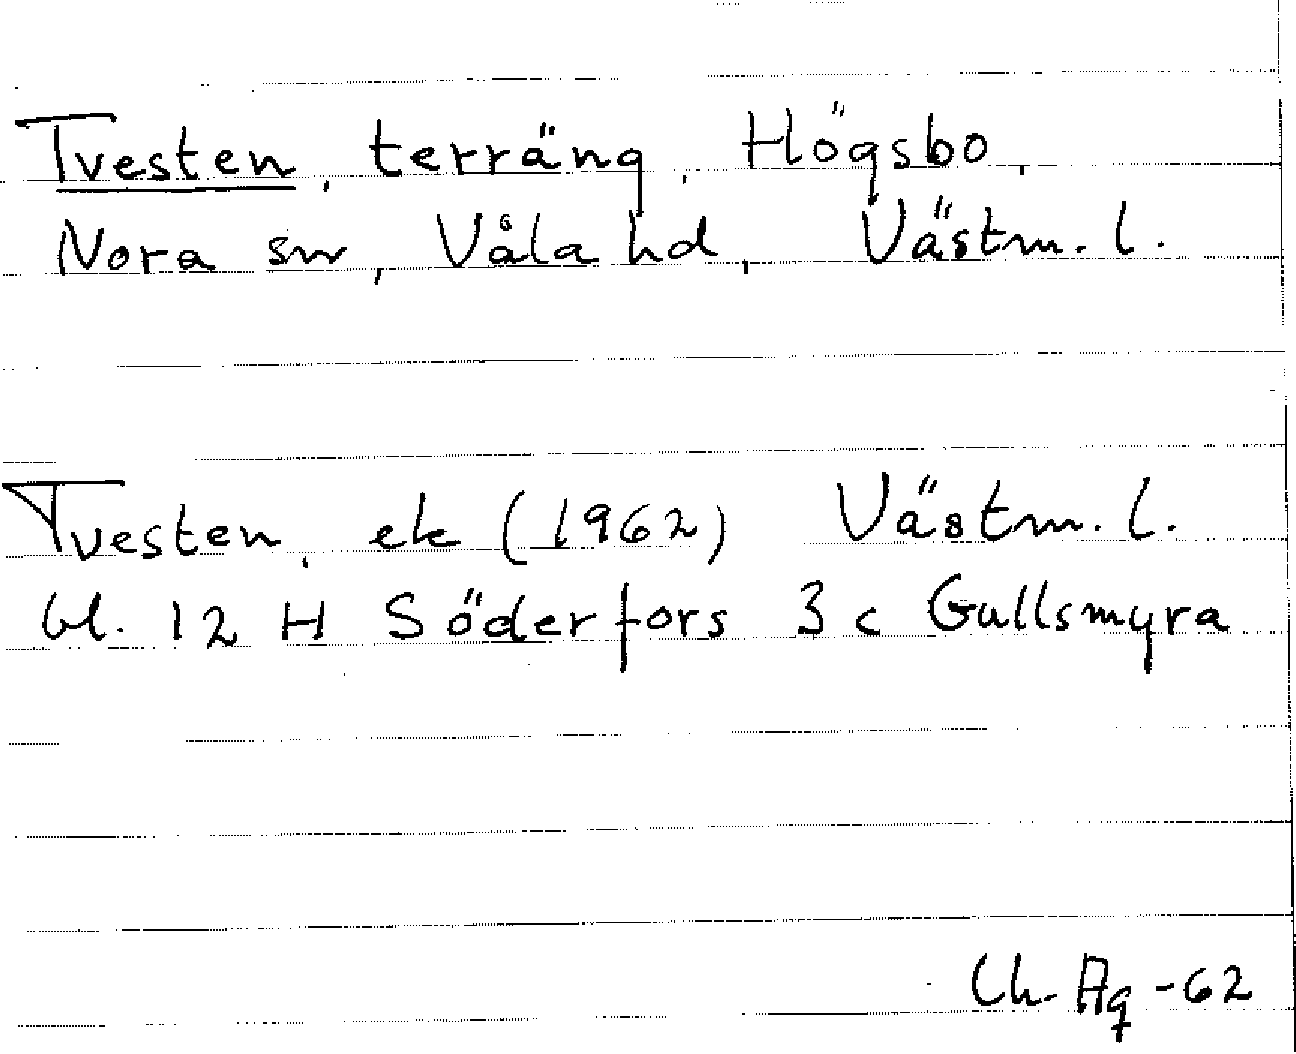 Tvesten, terräng, Högsbo,
Nora sn, Våla hd, Västm. l.
Tvesten, ek (1962) Västm. l.
bl. 12 H Söderfors 3 c Gullsmyra
Ch. Ag -62